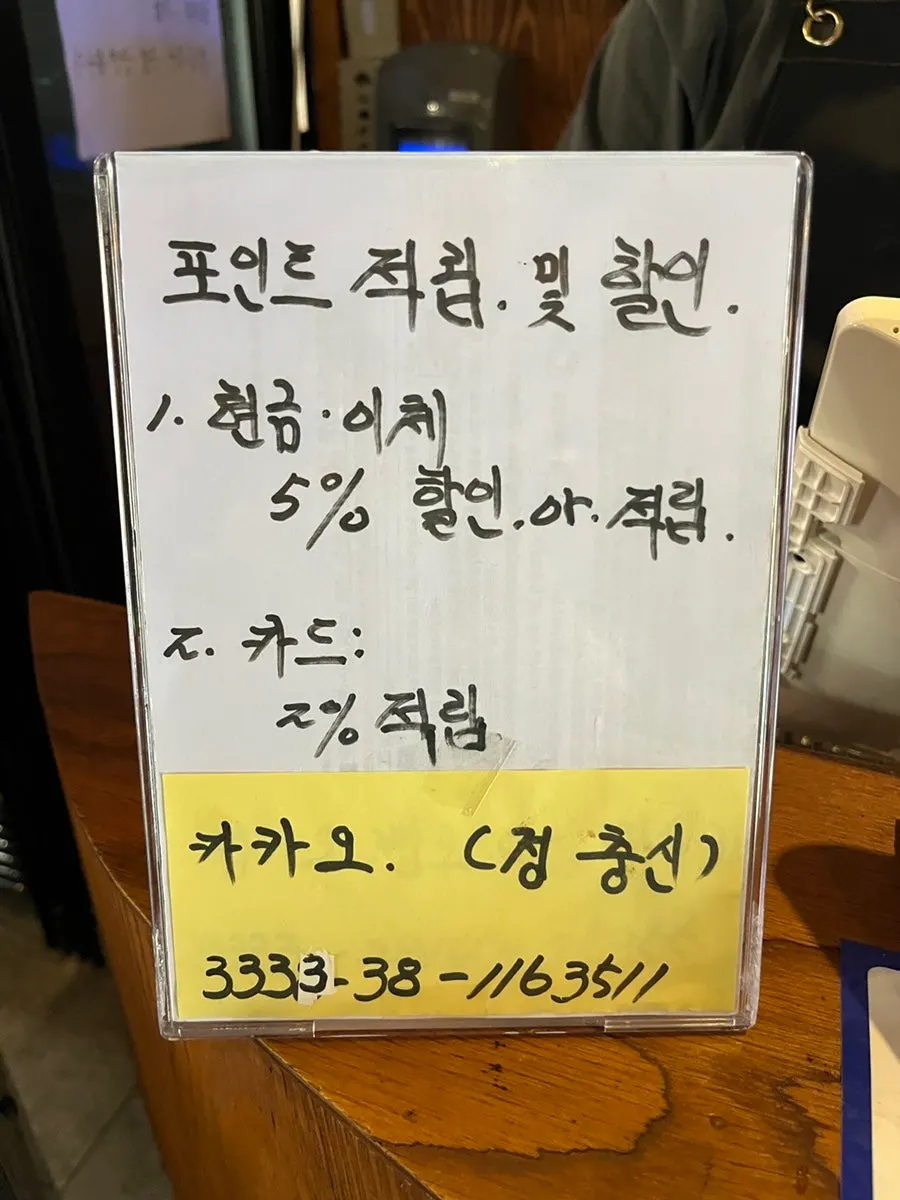 포인트 적립. 및 할인.
1. 현금·이체
5% 할인.아.적립.
2. 카드:
2% 적립
카카오. (정 충신)
3333-38-1163511